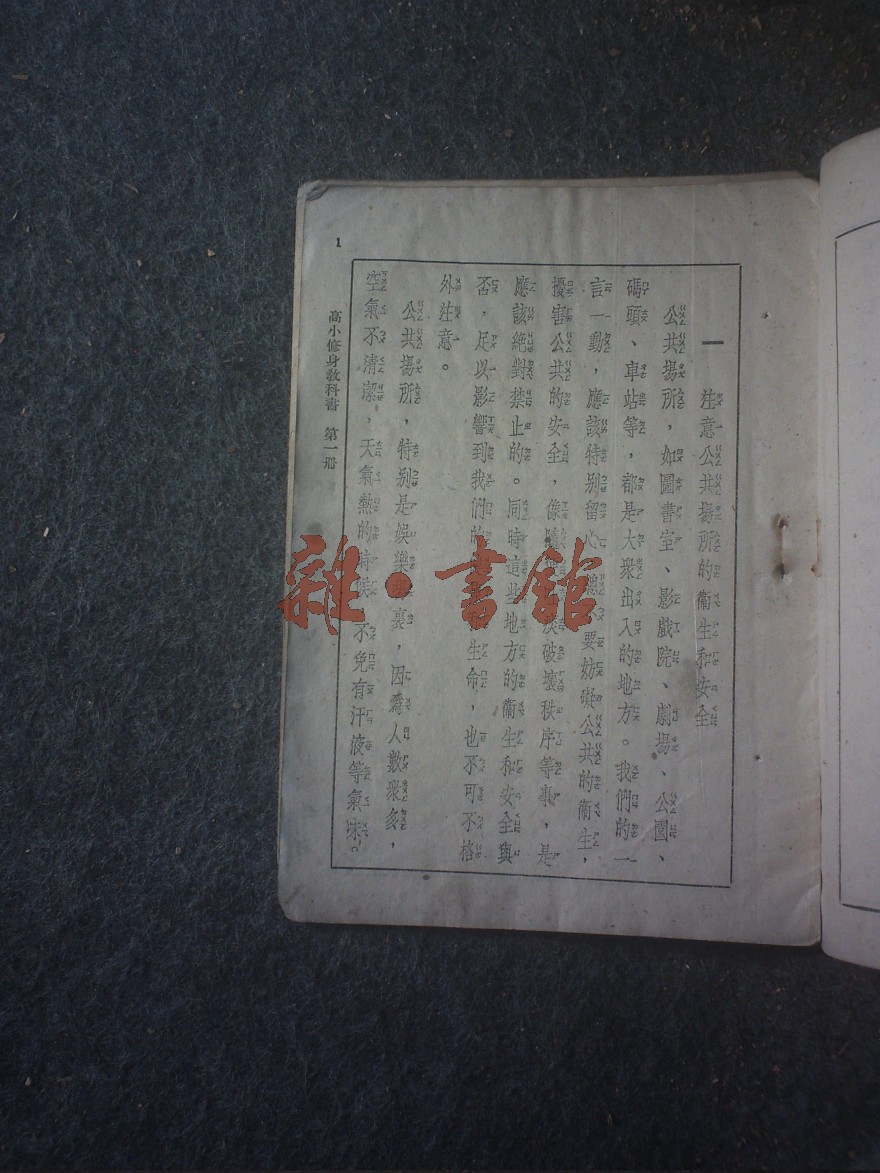 一 注意公共場所的衞生和安全
公共場所，如圖書室、影戲院、劇場、公園、
碼頭、車站等，都是大衆出入的地方。我們的一
言一動，應該特别留心，總不要妨礙公共的衞生，
擾害公共的安全，像隨破壞秩序等事，是
應該絶對禁止的。同時這些地方的衞生和安全與
否，足以影響到我們的生命，也不可不格
外注意。
公共場所，特别是娛樂裏，因爲人數衆多，
空氣不清潔，天氣熱的時候，不免有汗液等氣味。
高小修身教科書 第一册
1
雜·書館